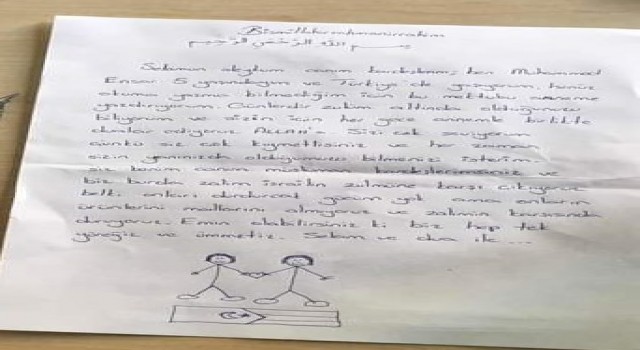 Bismillahirrahmanirrahim
بسم الله الرحمن الرحيم
Selamun aleyküm canım kardeşlerim; ben Muhammed
Ensar. 5 yaşındayım ve Türkiye'de yaşıyorum, henüz
okuma yazma bilmediğim için bu mektubu anneme
yazdırıyorum. Günlerdir zulüm altında olduğunuzu
biliyorum ve sizin için her gece annemle birlikte
dualar ediyoruz ALLAH'a. Sizi çok seviyorum
çünkü siz çok kıymetlisiniz ve her zaman
sizin yanınızda olduğumuzu bilmenizi isterim.
siz benim canım müslüman kardeşlerimsiniz ve
biz burada zalim israilin zulmüne karşı çıkıyoruz
belki onları durduracak gücüm yok ama onların
ürünlerini mallarını almıyoruz ve zalimin karşısında
duruyoruz. Emin olabilirsiniz ki biz hep tek
yüreğiz ve ümmetiz. Selam ve dua ile ...